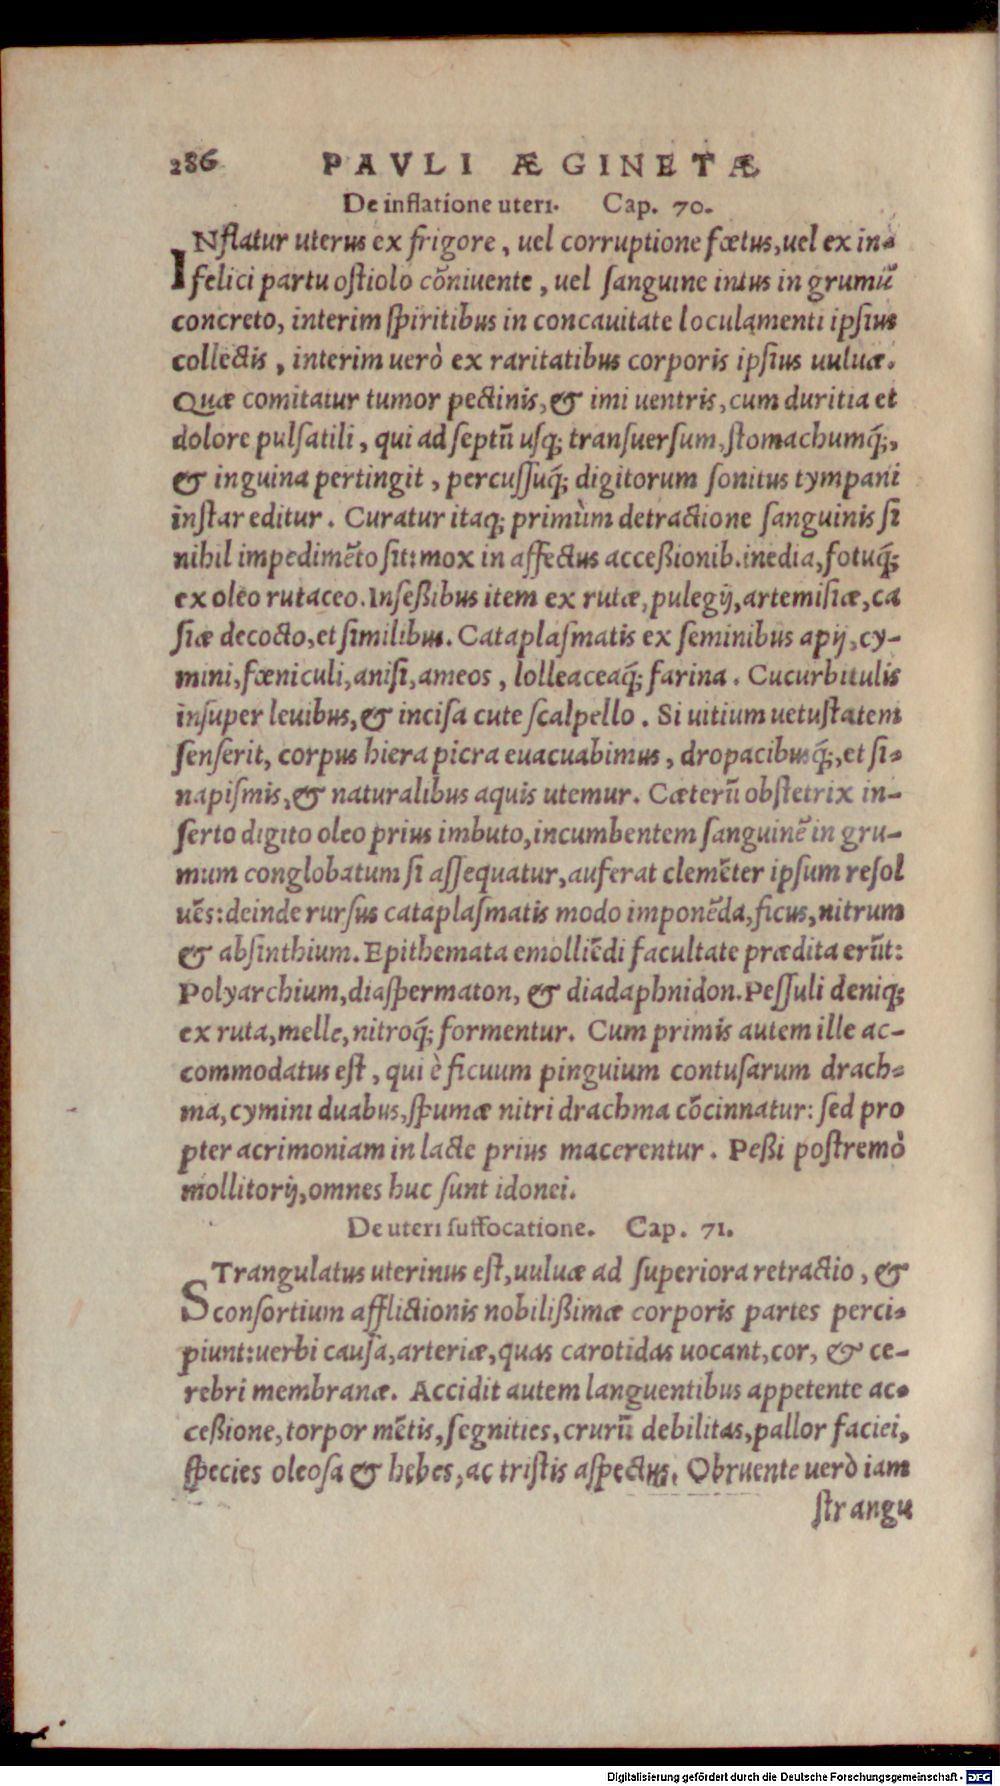 286 PAVLI ÆGINETÆ
De inflatione uteri. Cap. 70.
INflatur uterus ex frigore, uel corruptione fœtus, uel ex in-
felici partu ostiolo cõniuente, uel sanguine intus in grumũ
concreto, interim spiritibus in concauitate loculamenti ipsius
collectis, interim uerò ex raritatibus corporis ipsius uuluæ.
Quæ comitatur tumor pectinis, & imi uentris, cum duritia et
dolore pulsatili, qui ad septũ usq; transuersum, stomachumq́;,
& inguina pertingit, percussuq́; digitorum sonitus tympani
instar editur. Curatur itaq; primùm detractione sanguinis si
nihil impedimẽto sit: mox in affectus acceßionib. inedia, fotuq́;
ex oleo rutaceo. Inseßibus item ex rutæ, pulegij, artemisiæ, ca
siæ decocto, et similibus. Cataplasmatis ex seminibus apij, cy-
mini, fœniculi, anisi, ameos, lolleaceaq́; farina. Cucurbitulis
insuper leuibus, & incisa cute scalpello. Si uitium uetustatem
senserit, corpus hiera picra euacuabimus, dropacibusq́;, et si-
napismis, & naturalibus aquis utemur. Cæterũ obstetrix in-
serto digito oleo prius imbuto, incumbentem sanguinẽ in gru-
mum conglobatum si assequatur, auferat clemẽter ipsum resol
uẽs: deinde rursus cataplasmatis modo imponẽda, ficus, nitrum
& absinthium. Epithemata emolliẽdi facultate prædita erũt:
Polyarchium, diaspermaton, & diadaphnidon. Pessuli deniq;
ex ruta, melle, nitroq́; formentur. Cum primis autem ille ac-
commodatus est, qui è ficuum pinguium contusarum drach-
ma, cymini duabus, spumæ nitri drachma cõcinnatur: sed pro
pter acrimoniam in lacte prius macerentur. Peßi postremò
mollitorij, omnes huc sunt idonei.
De uteri suffocatione. Cap. 71.
STrangulatus uterinus est, uuluæ ad superiora retractio, &
consortium afflictionis nobilißimæ corporis partes perci-
piunt: uerbi causa, arteriæ, quas carotidas uocant, cor, & ce-
rebri membranæ. Accidit autem languentibus appetente ac-
ceßione, torpor mẽtis, segnities, crurũ debilitas, pallor faciei,
species oleosa & hebes, ac tristis aspectus. Obruente uerò iam
strangu
Digitalisierung gefördert durch die Deutsche Forschungsgemeinschaft - DFG